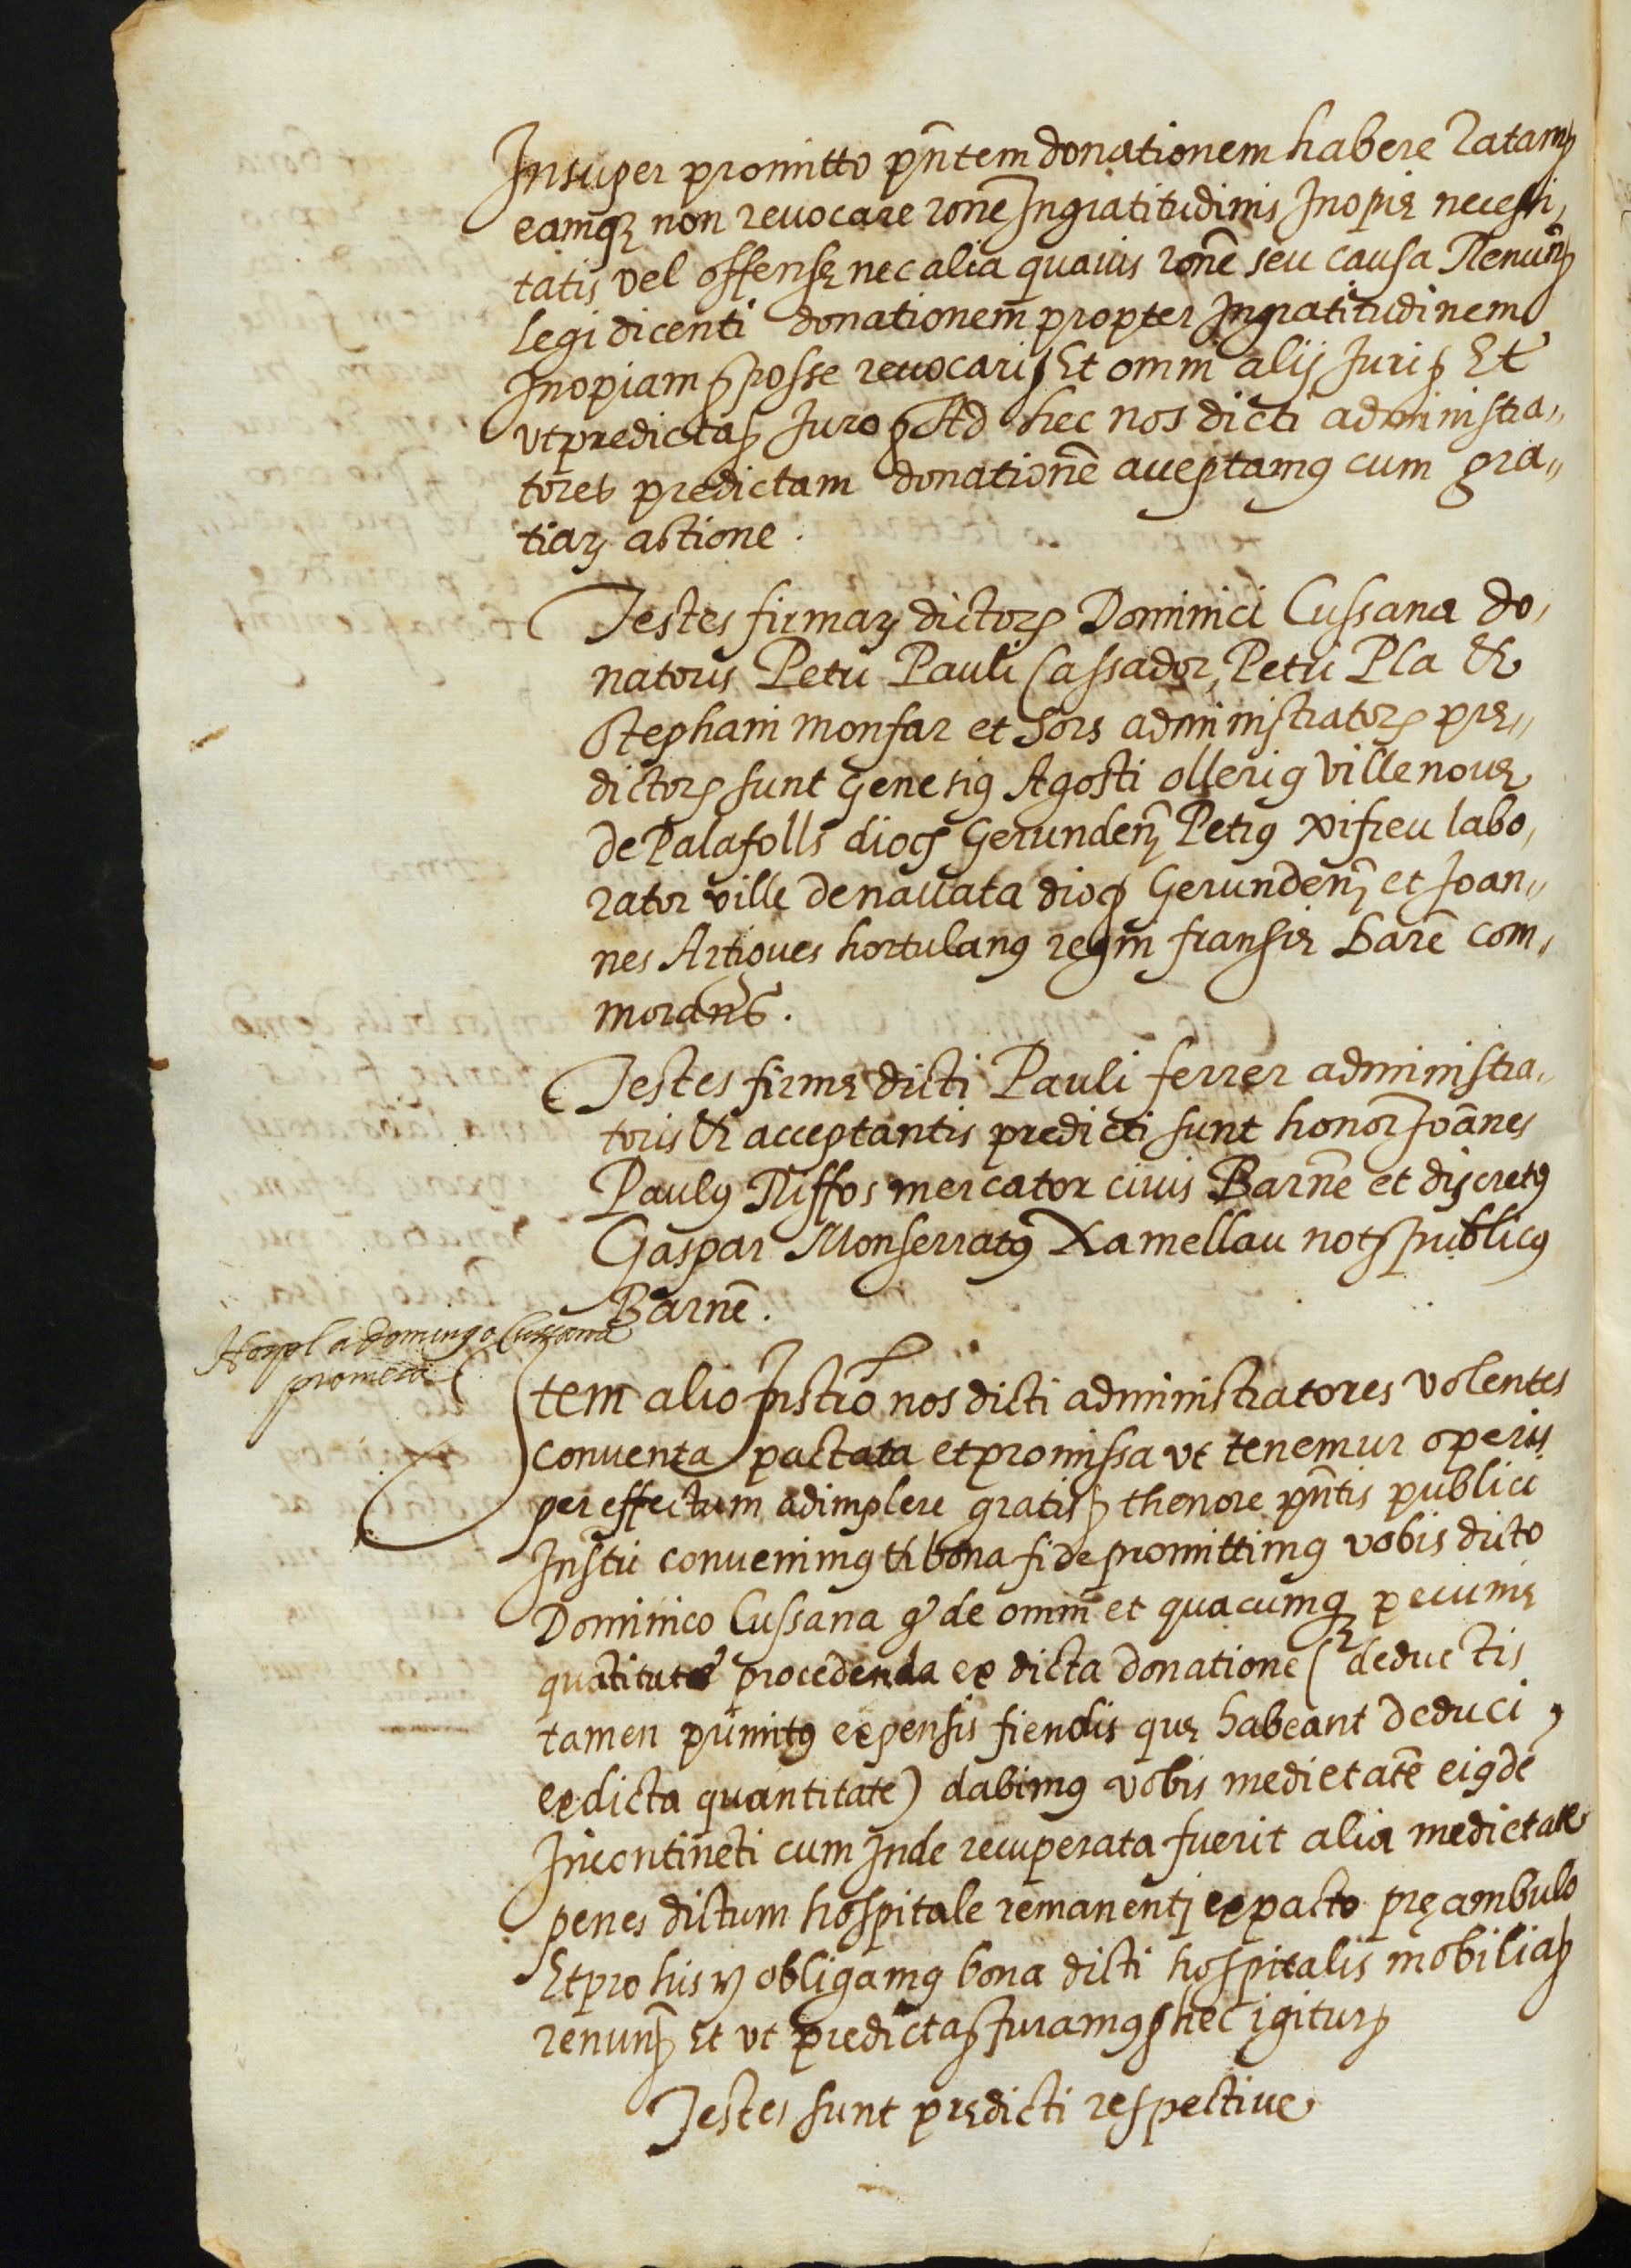 Insuper promitto pñtem donationem habere ratam
eamq̃ non reuocare rone Ingratitudinis Inopię necessi,
tatis vel offensę nec alia quauis rone seu causa Renuñ
legi dicenti donationem propter Ingratitudinem
Inopiam posse reuocari Et omni alij Juri Et
vt predicta Juro Ad hec nos dicti administra,,
tores predictam donationē acceptamꝰ cum gra,,
tiaꝝ actione.
Testes firmaꝝ dictoꝝ Dominici Cussana do,
natoris Petri Pauli Cassador, Petri Pla &
Stephani monfar et Sors administratoꝝ prę,,
dictoꝝ sunt Genesiꝰ Agosti olleriꝰ ville nouę
de Palafolls dioc̃ Gerundeñ Petrꝰ xifreu labo,
rator ville de nauata dioc̃ Gerundeñ et Joan,,
nes Artigues hortulanꝰ regni fransię Barē com,
morans.
Testes firmę dicti Pauli ferrer administra,
toris & acceptantis predicti sunt honor Joānes
Paulꝰ Riffos mercator ciuis Barnē et discretꝰ
Gaspar Monserratꝰ Xamellau not publicꝰ
Barnē.
Hospl a domingo Cussana
promesa
Item alio Instro nos dicti administratores volentes
conuenta pactata et promissa vt tenemur operis
per effectum adimplere gratis thenore pñtis publici
Instri conuenimꝰ & bona fide promittimꝰ vobis dicto
Dominico Cussana ꝙ de omni et quacumq̃ pecunię
quātitate procedenda ex dicta donatione (deductis
tamen primitꝰ expensis fiendis quę habeant deduci,
ex dicta quantitate) dabimꝰ vobis medietatē eiꝰdē
Incontinēti cum Inde recuperata fuerit alia medietate
penes dictum hospitale remanenti ex pacto pręambulo
Et pro his obligamꝰ bona dicti hospitalis mobilia
renuñ Et vt predicta Juramꝰ hec igitur
Testes sunt prędicti respectiue